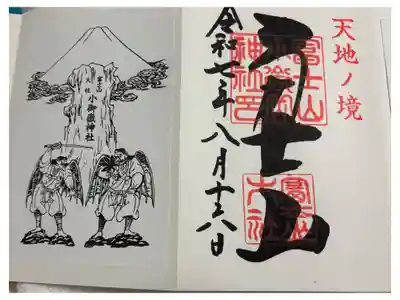 天地ノ境
冨士山
令和七年八月十六日
冨士山
小御嶽
神社印
冨士山
大社
小御嶽神社